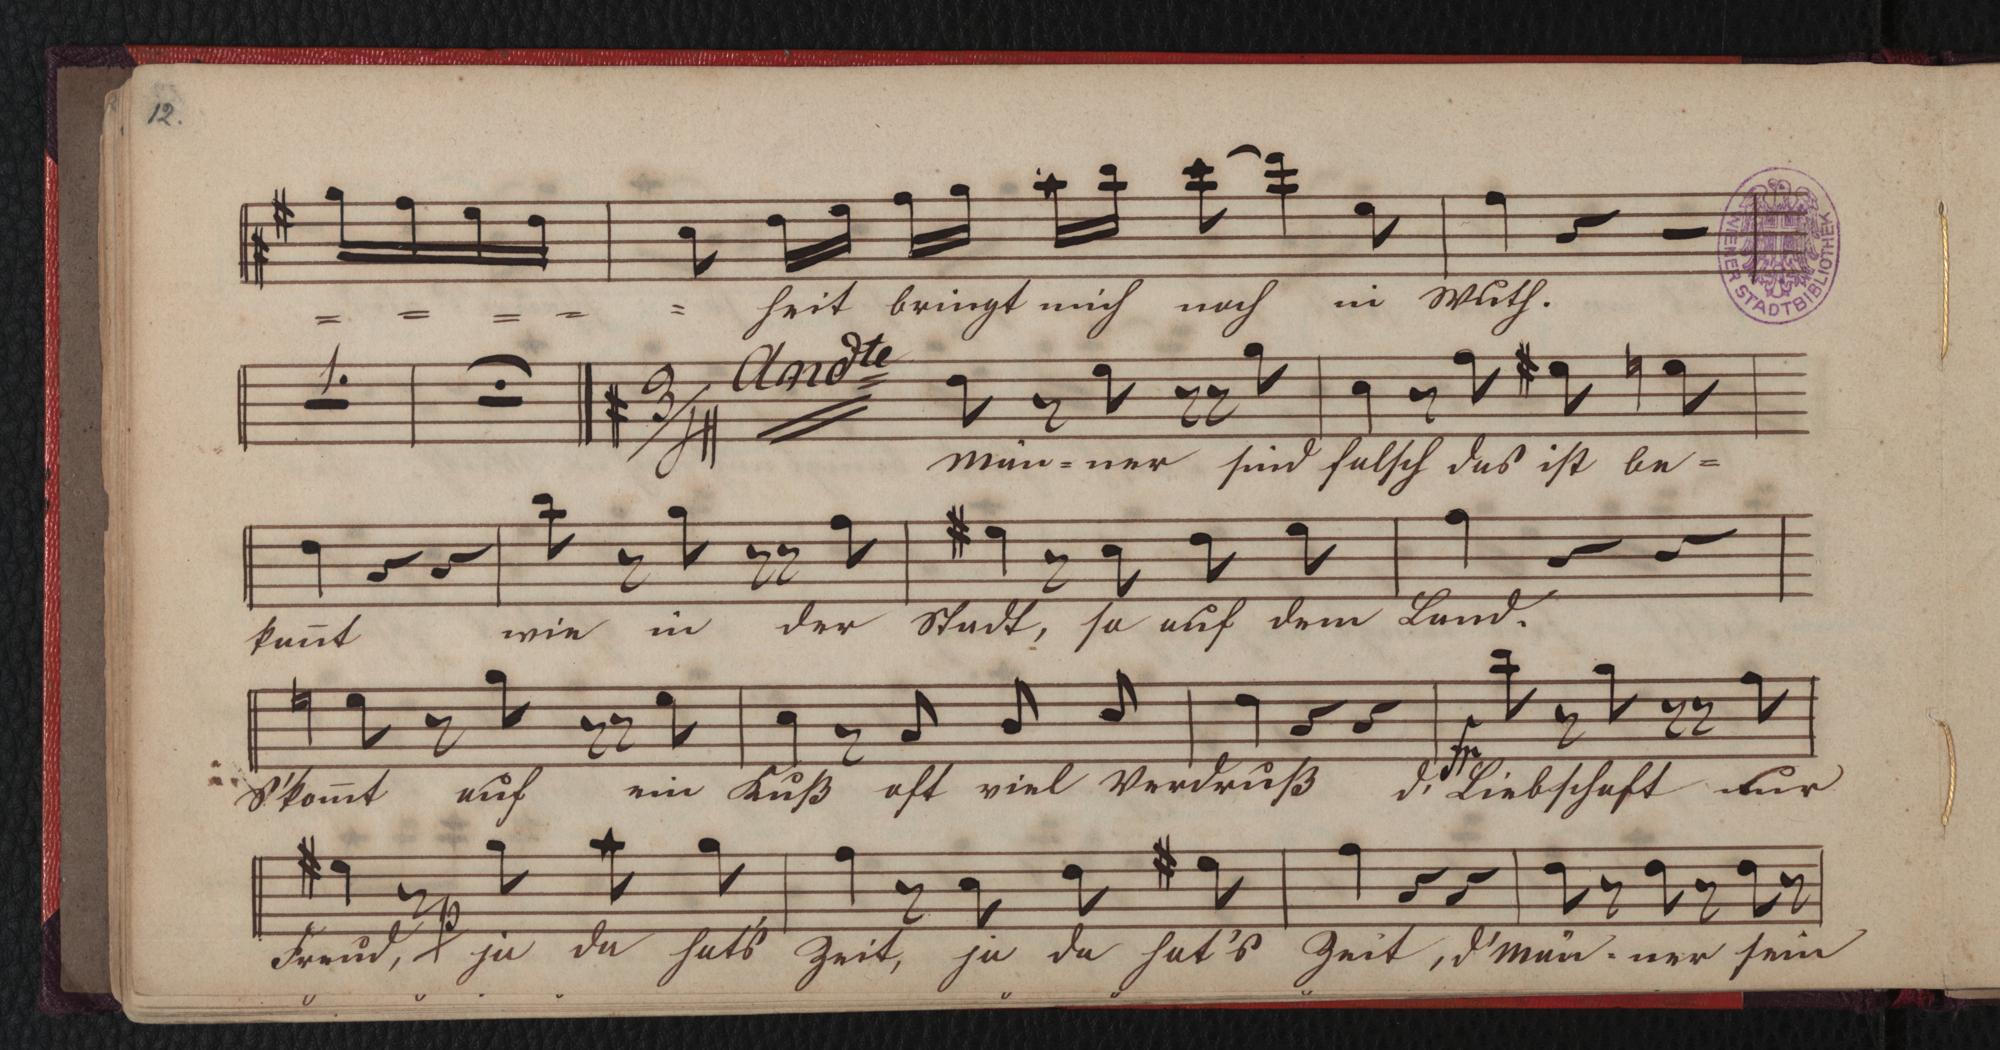 12.
= = = = = heit bringt mich noch in Wuth.
WIENER STADTBIBLIOTHEK
1.
3/4 Andte
Män=ner sind falsch das ist be=
kan̄t wie in der Stadt, so auf dem Land.
S'kom̄t auf ein Kuß oft viel Verdruß d' Liebschaft nur
fp
Freud, ja da hat's Zeit, ja da hat's Zeit, d'Män-ner sein
p